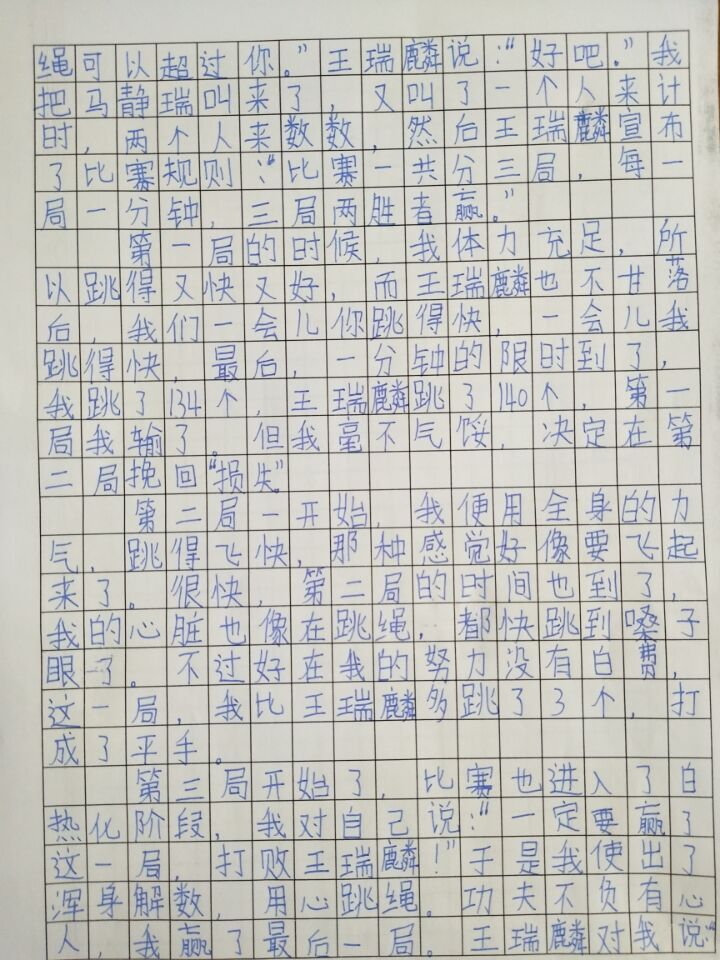 绳可以超过你。”王瑞麟说：“好吧。”我
把马静瑞叫来了，又叫了一个人来计
时，两个人来数数，然后王瑞麟宣布
了比赛规则：“比赛一共分三局，每一
局一分钟，三局两胜者赢。”
第一局的时候，我体力充足，所
以跳得又快又好，而王瑞麟也不甘落
后，我们一会儿你跳得快，一会儿我
跳得快，最后，一分钟的限时到了，
我跳了134个，王瑞麟跳了140个，第一
局我输了。但我毫不气馁，决定在第
二局挽回“损失”
第二局一开始，我便用全身的力
气，跳得飞快，那种感觉好像要飞起
来了。很快，第二局的时间也到了，
我的心脏也像在跳绳，都快跳到嗓子
眼了。不过好在我的努力没有白费，
这一局，我比王瑞麟多跳了3个，打
成了平手。
第三局开始了，比赛也进入了白
热化阶段，我对自己说：“一定要赢了
这一局，打败王瑞麟！”于是我使出了
浑身解数，用心跳绳。功夫不负有心
人，我赢了最后一局。王瑞麟对我说：“